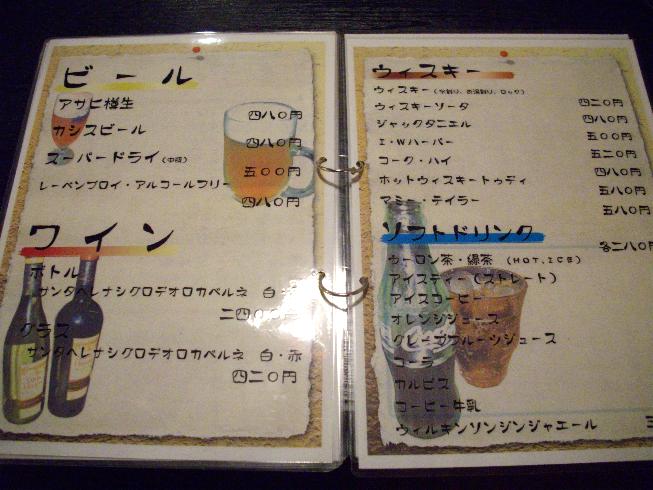 ビール
アサヒ樽生
四八〇円
カシスビール
四八〇円
スーパードライ(中瓶)
五〇〇円
レーベンブロイ・アルコールフリー
四八〇円
ワイン
ボトル
サンタヘレナシグロデオロカベルネ 白・
二四〇〇円
グラス
サンタヘレナシグロデオロカベルネ 白・赤
四二〇円
ウィスキー
ウィスキー(水割り、お湯割り、ロック)
四二〇円
ウィスキーソーダ
四八〇円
ジャックダニエル
五〇〇円
I・Wハーパー
五二〇円
コーク・ハイ
四八〇円
ホットウィスキートゥディ
五八〇円
マミー・テイラー
五八〇円
ソフトドリンク
各二八〇円
ウーロン茶・緑茶 (HOT,ICE)
アイスティー(ストレート)
アイスコーヒー
オレンジジュース
グレープフルーツジュース
コーラ
カルピス
コーヒー牛乳
ウィルキンソンジンジャエール